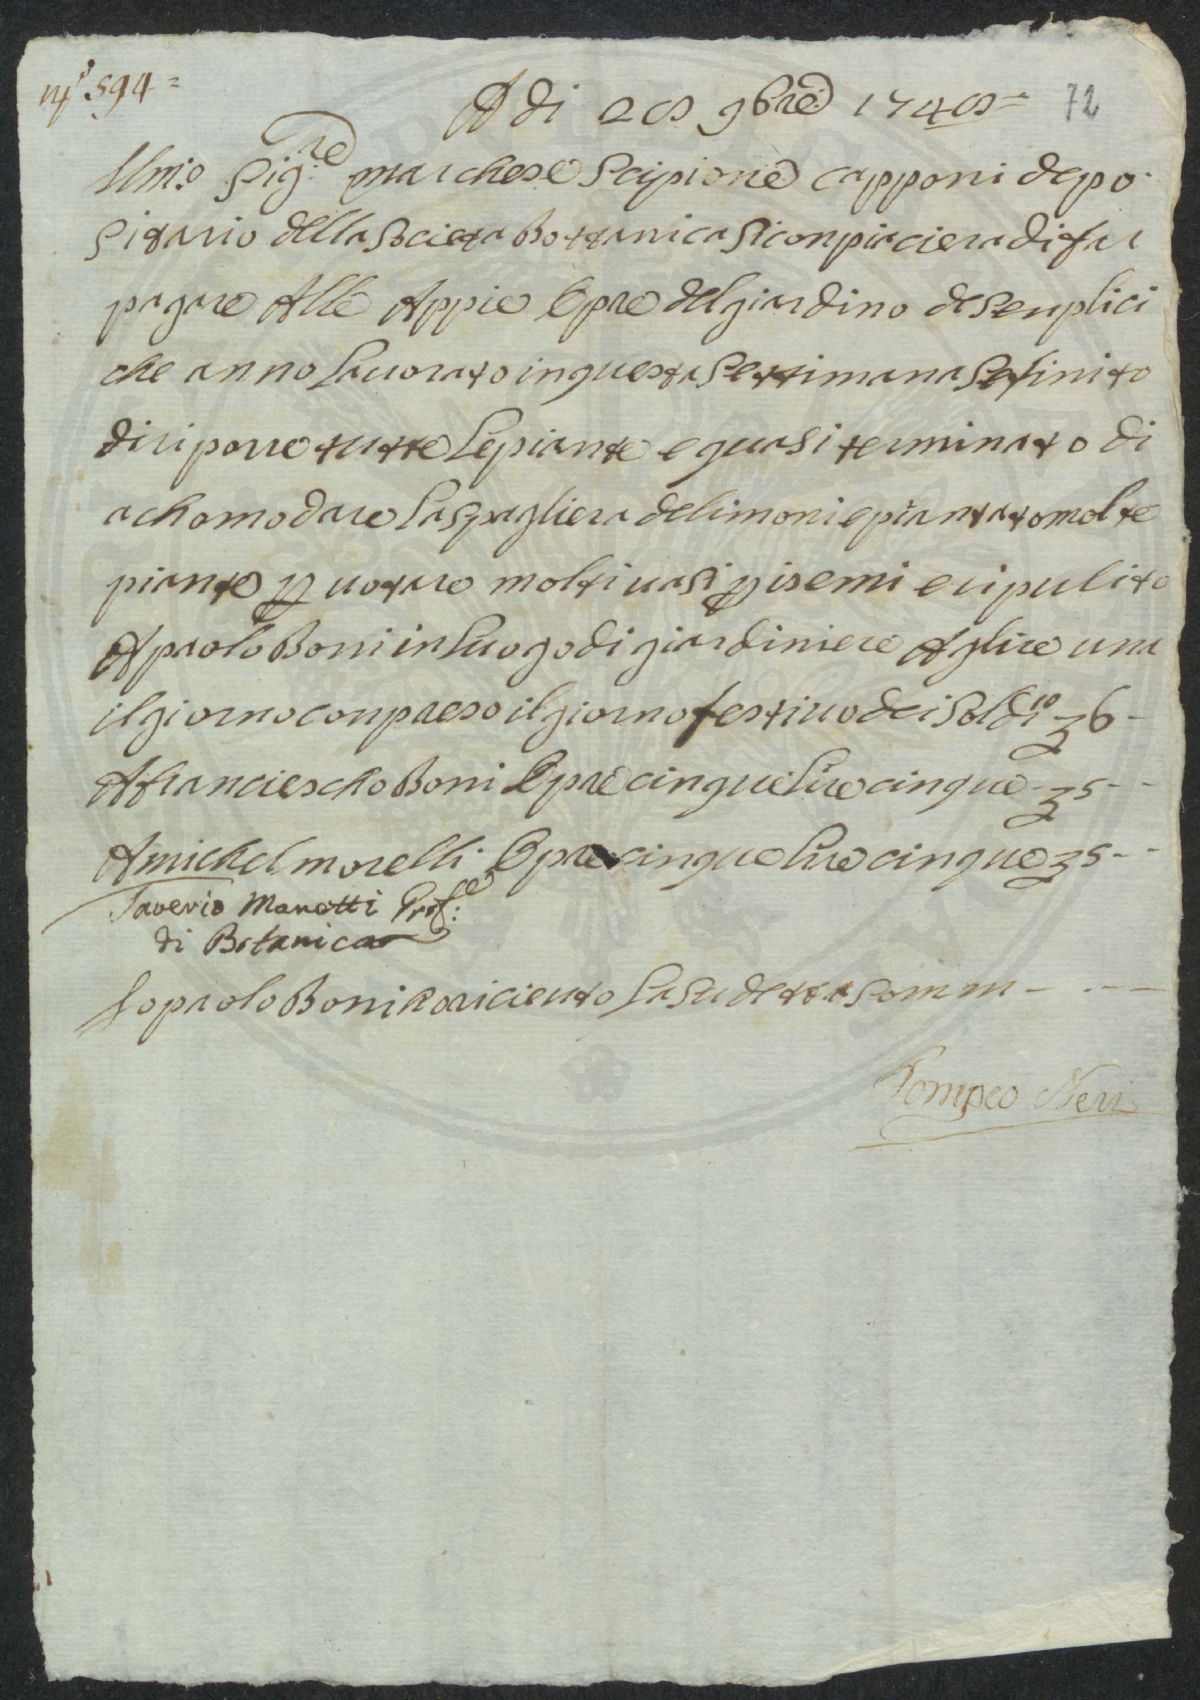 N.° 594 =
A di 28 9bre: 1748 =
72
Ilmio Sig:re marchese Scipione capponi depo
sitario della Societa Bottanica Si conpiaciera di far
pagare Alle Appie Opre del giardino de Senplici
che anno Lauorato in questa Settimana Sefinito
di riporre tutte Le piante e quasi terminato di
achomodare La spagliera de limoni e piantato molte
piante p uotare molti uasi p i semi e ripulito
A paolo Boni in Luogo di giardiniere A glire una
il giorno conpreso il giorno festiuo dei Soldi 10 6 -
A franciescho Boni Opre cinque Lire cinque 5 - -
A michel morelli Opre cinque Lire cinque 5 - -
Saverio Manetti Prof:e
di Botanica
Io paolo Boni O riceuto La Su detta Somm - - -
Pompeo Neri